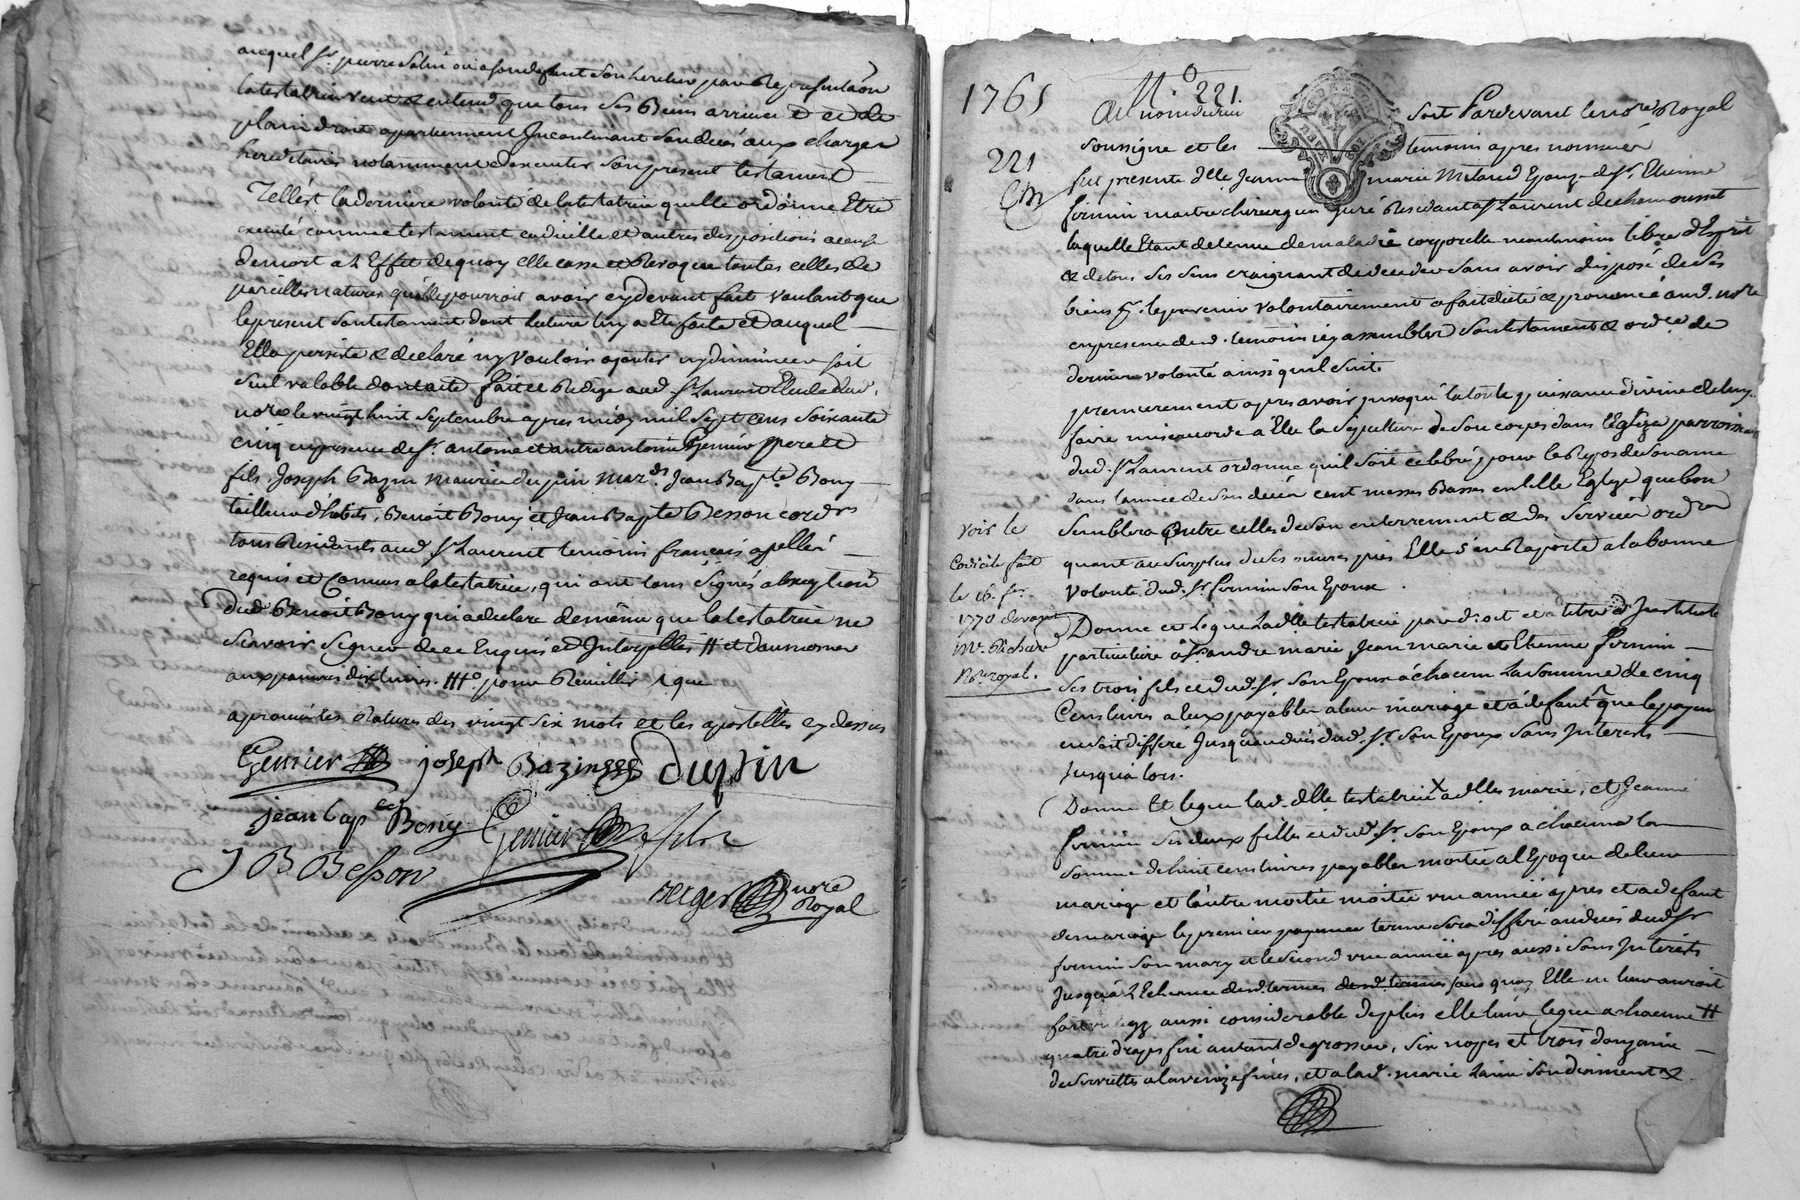 auquel Sr. pierre
la testatrice veut & entend que tous ses Biens arrivent & de
plain droit apartiennent Incontinant son decés aux charges
hereditaires notamment d'executer son present testament
Telle est la derniere volonté de la testatrice quelle ordonne Etre
executé comme testament codicille et autres dispositions a cause
de mort a L'Effet de quoy elle casse et Revoque toutes celles de
pareilles natures quelle pourroit avoir cydevant fait voulant que
le present son testament dont Lecture luy a Eté faite et auquel
Elle persiste & declaré ny vouloir ajouter ny diminuer soit
seul valable dont acte fait et Redigé aud. St Laurent Etude dud.
nore le vingt huit septembre apres midy mil sept cens soixante
cinq en presence de Sr. antoine et autre antoine Genier pere et
fils Joseph Bazin maurice dupin mards. Jean Bapte. Bony
tailleur d'habits, Benoit Bony et Jean Bapte Besson cordrs
tous Residants aud. St Laurent temoins françois apellés
requis et Connus a la testatrice, qui ont tous signés a l'exeption
dud. Benoit Bony qui a declaré de même que la testatrice ne
scavoir signer de ce Enquis et Interpellés # et d'aumoner
aux pauvres dix livres. pour Recuillir que
aprouvé les Ratures des vingt six mots et les apostilles cy dessus
Genier joseph Bazin dupin
jean bap Bony Genier fils
J B Besson
Berger nore
Royal
1765 No. 221.
Au nom de dieu soit Pardevant le nore Royal
221 soussigné et les temoins apres nommés
fut presente dlle Jeanne marie Mitaud Epouze de Sr. Etienne
firmin maitre chirurgien juré Residant a St Laurent de chamousset
laquelle Etant detenue de maladie corporelle neantmoins libre d'Esprit
& de tous ses sens craignant de deceder sans avoir disposé de ses
biens pr. le prevenir volontairement a fait dicté & prononcé aud. nore
en presence desd. temoins icy assemblés son testament & ordce de
derniere volonté ainsi quil suit.
premierement apres avoir invoqué la toute puissance divine de luy
faire misericorde a Elu la sepulture de son corps dans l'Eglize parroissial
dud. St Laurent ordonne quil soit celebré pour le Repos de son ame
dans l'année de son decés cent messes Basses en telle Eglize que bon
semblera outre celles de son enterrement & des services ordres
quant au surplus de ses œuvres pies Elle s'en Raporte a la bonne
volonté dud. Sr. firmin son Epoux.
voir le
Codicile fait
le 16. fer.
1770 devant
Me. Richard
Nre royal.
Donne et Legue Ladlle testatrice par droit et a titre d'Institution
particuliere a andre marie, Jean marie et Etienne firmin
ses trois fils et dud. Sr son Epoux a chacun La somme de cinq
Cens livres a Eux payable a leur mariage et a defaut que le payement
en soit differé Jusqu'au decés dud. Sr. son Epoux sans Interets
Jusqu'a lors.
Donne Et legue lad. dlle testatrice x a dlles marie, et Jeanne
firmin ses deux filles et dud. Sr. son Epoux a chacune la
somme de huit cens livres payables moitié a l'Epoque de leur
mariage et l'autre moitié moitié une année apres et a defaut
de mariage le premier payement terme sera differé au decés dud Sr
firmin son mary et le second une année apres aussi sans Interets
Jusqu'a L'Echeance desd. termes desd. termes sans quoy Elle ne leur auroit
fait un legs aussi considerable de plus elle leur legue a chacune #
quatre draps fin autant de grossier, six napes et trois douzaine
de serviettes a la venize fines, et a lad. marie Laine son diament &